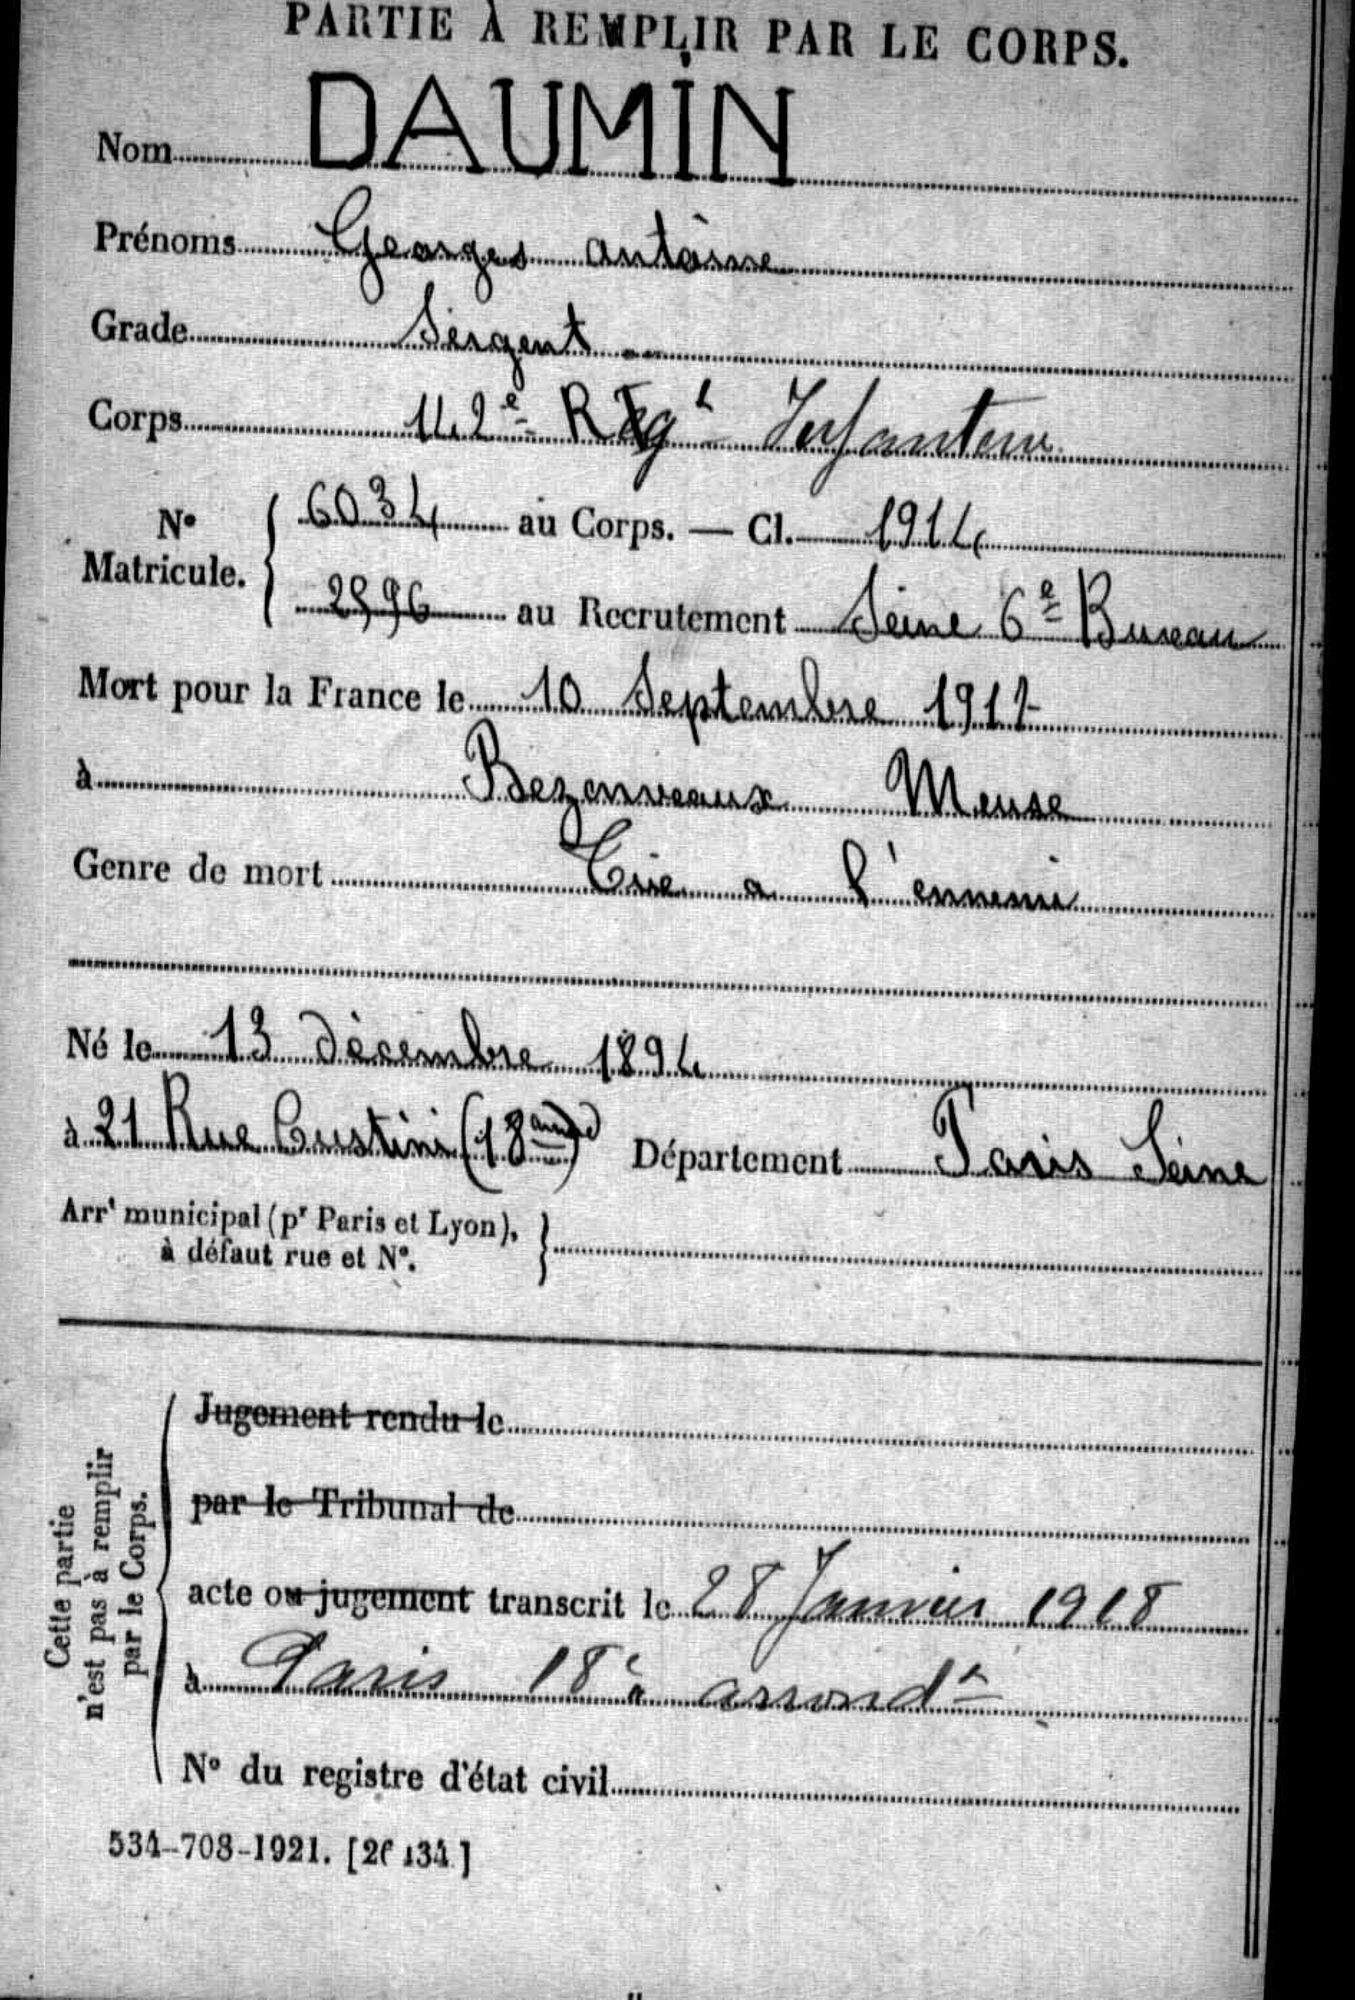 PARTIE À REMPLIR PAR LE CORPS.
Nom DAUMIN
Prénoms Georges antoine
Grade Sergent
Corps 142e Régt Infanterie
No Matricule. { 6034 au Corps. — Cl. 1914
2596 au Recrutement Seine 6e Bureau
Mort pour la France le 10 Septembre 1917
à Bezonveaux Meuse
Genre de mort Tué a l'ennemi
Né le 13 décembre 1894
à 21 Rue Custine (18 Département Paris Seine
Arrt municipal (pr Paris et Lyon), à défaut rue et No. }
Cette partie n'est pas à remplir par le Corps.
Jugement rendu le
par le Tribunal de
acte ou jugement transcrit le 28 Janvier 1918
à Paris 18e arrondt
No du registre d'état civil
534-708-1921. [26434.]